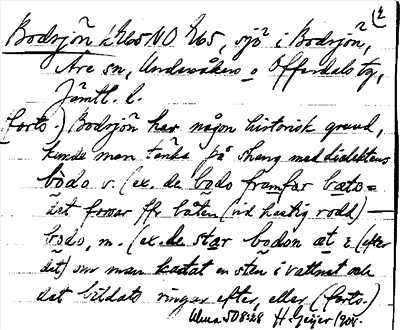 (2
Bodsjön 2465 NO 465, sjö i Bodsjön,
Åre sn, Undersåkers o Offerdals tg,
Jämtl. l.
(forts.) Bodsjön har någon historisk grund,
kunde man tänka på sbang med dialektens
bodo v. (ex. de bodo framfar bato=
det forsar fr båten (vid hastig rodd) —
bodo, m. (ex. de star bodon at 2 (efter
det) sur man kastat en sten i vattnet och
det bildats ringar efter, eller (forts.)
508:28 H. Geijer 1908.